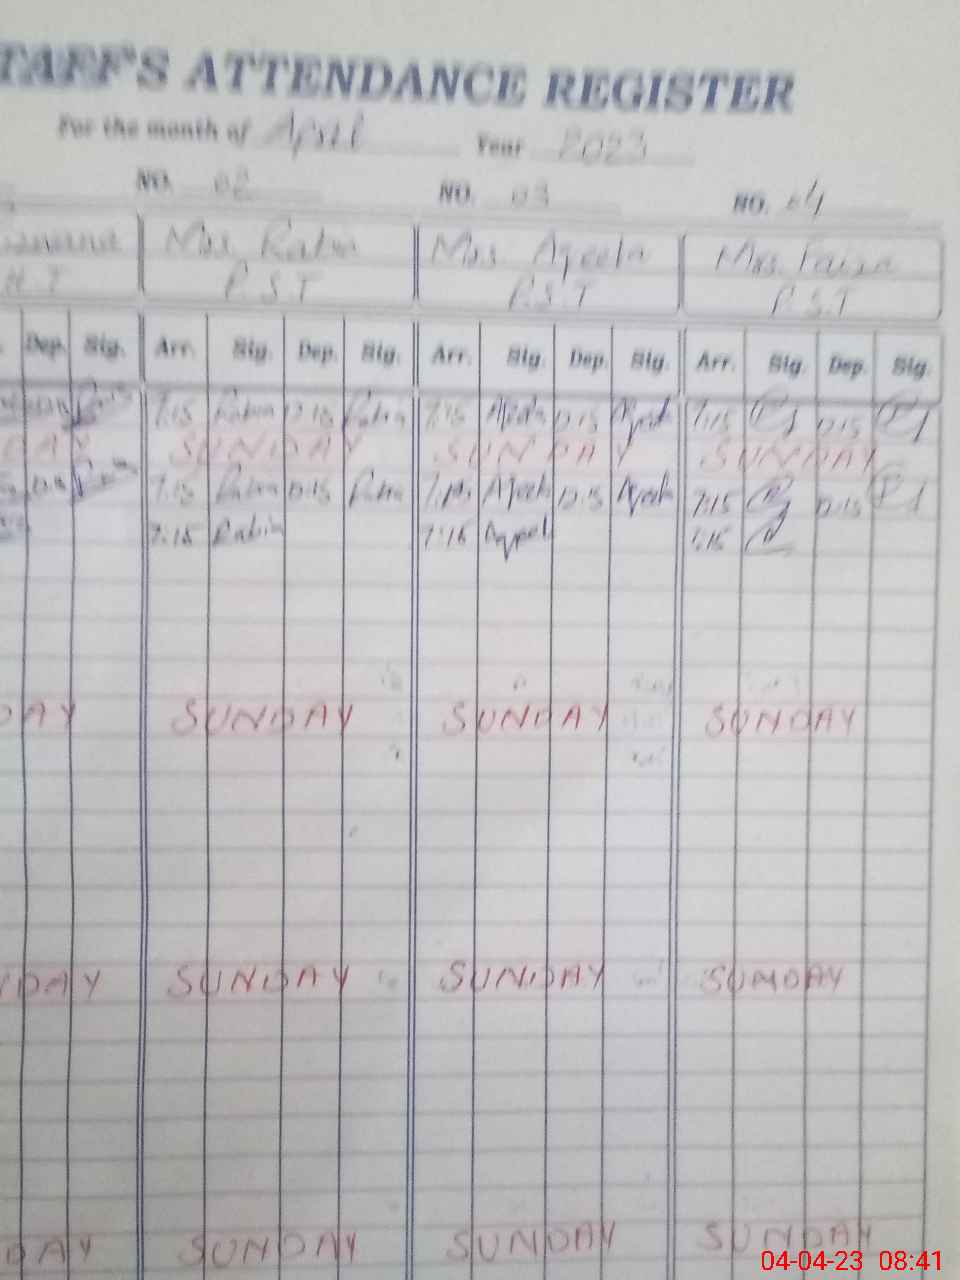 STAFF'S ATTENDANCE REGISTER
For the month of April Year 2023
NO. 02 NO. 03 NO. 04
Mrs. Rabia Mrs Aqeela Mrs. Faiza
H.T P.S.T P.S.T P.S.T
Dep. Sig. Arr. Sig. Dep. Sig. Arr. Sig. Dep. Sig. Arr. Sig. Dep. Sig.
7:15 Rabia 12:15 Rabia 7:15 Aqeela 12:15 Aqeela 7:15 12:15
DAY SUNDAY SUNDAY SUNDAY
7:15 Rabia 12:15 Rabia 7:15 Aqeela 12:15 Aqeela 7:15 12:15
7:15 Rabia 7:15 Aqeel 7:15
DAY SUNDAY SUNDAY SUNDAY
NDAY SUNDAY SUNDAY SUNDAY
DAY SUNDAY SUNDAY SUNDAY
04-04-23 08:41